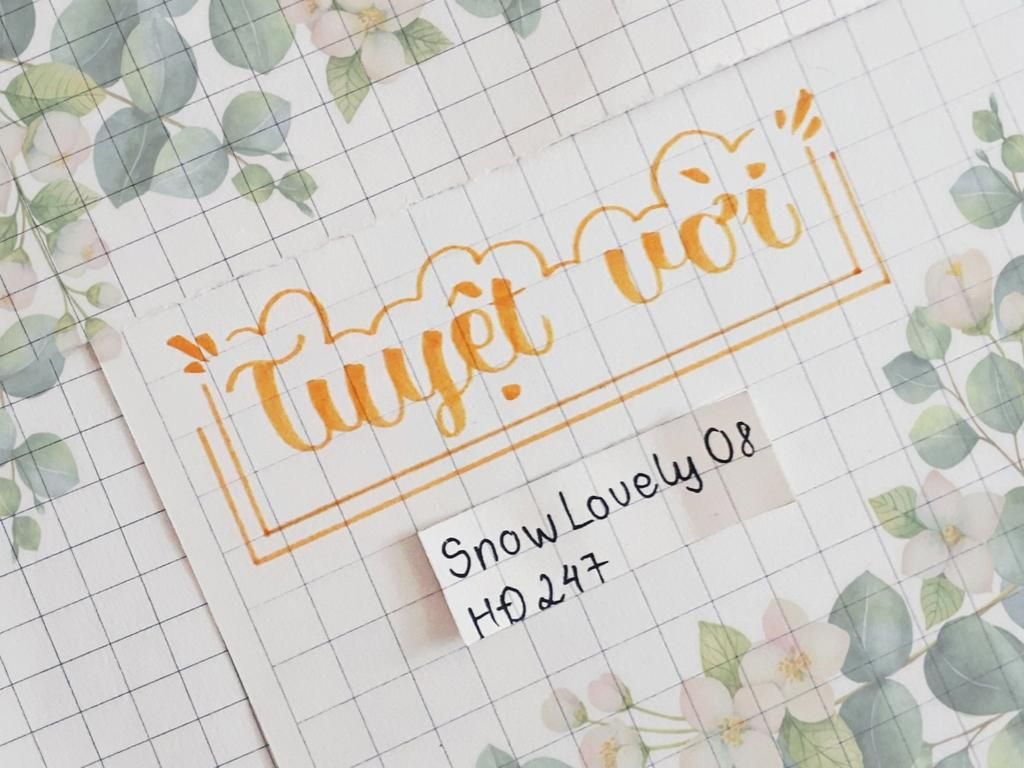 Tuyệt vời
SnowLovely 08
HĐ 247